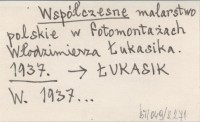 Współczesne malarstwo
polskie w fotomontażach
Włodzimierza Łukasika.
1937. → ŁUKASIK
W. 1937...